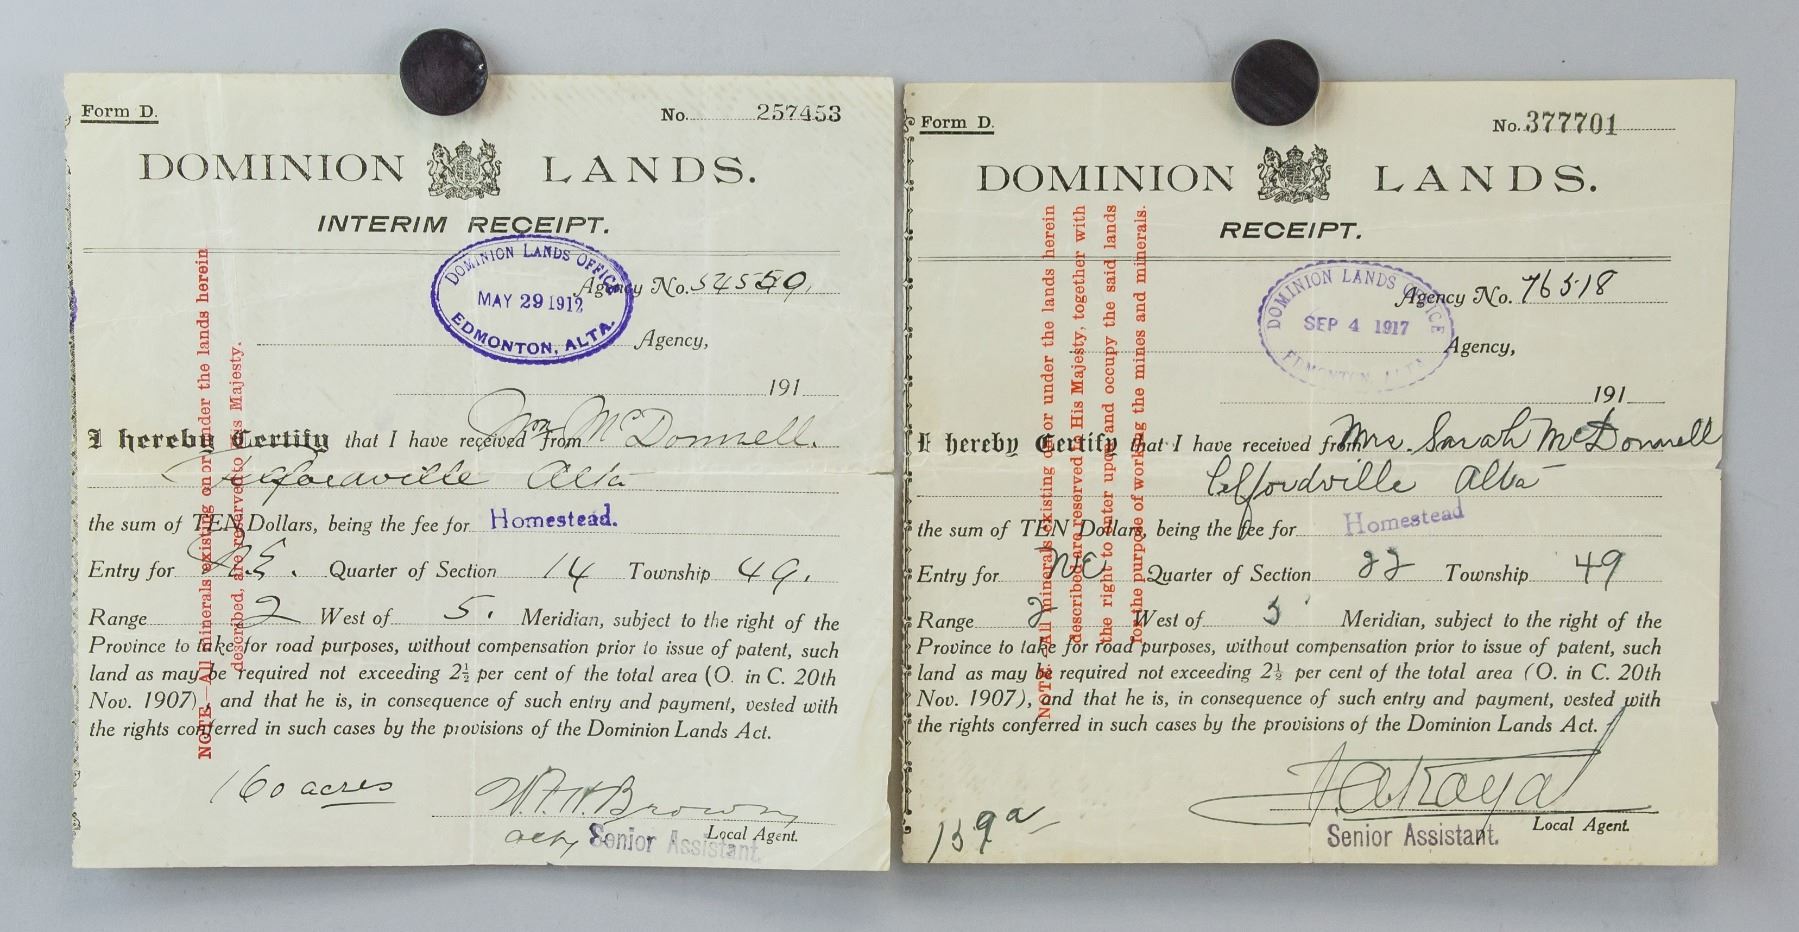 Form D.
No. 257453
DOMINION LANDS.
INTERIM RECEIPT.
DOMINION LANDS OFFICE
MAY 29 1912
EDMONTON, ALTA.
Agency No. 54550
Agency,
191
I hereby Certify that I have received from Wm McDonnell.
Alta
the sum of TEN Dollars, being the fee for Homestead.
Entry for N.E. Quarter of Section 14 Township 49.
Range 2 West of 5. Meridian, subject to the right of the
Province to take for road purposes, without compensation prior to issue of patent, such
land as may be required not exceeding 2½ per cent of the total area (O. in C. 20th
Nov. 1907), and that he is, in consequence of such entry and payment, vested with
the rights conferred in such cases by the provisions of the Dominion Lands Act.
160 acres
W.H. Brown
Local Agent.
Senior Assistant.
NOTE—All minerals existing on or under the lands herein
described, are reserved to His Majesty.
Form D.
No. 377701
DOMINION LANDS.
RECEIPT.
DOMINION LANDS OFFICE
SEP 4 1917
EDMONTON, ALTA
Agency No. 76518
Agency,
191
I hereby Certify that I have received from Mrs. Sarah McDonnell
Alta
the sum of TEN Dollars, being the fee for Homestead
Entry for NE Quarter of Section 22 Township 49
Range 2 West of 5 Meridian, subject to the right of the
Province to take for road purposes, without compensation prior to issue of patent, such
land as may be required not exceeding 2½ per cent of the total area (O. in C. 20th
Nov. 1907), and that he is, in consequence of such entry and payment, vested with
the rights conferred in such cases by the provisions of the Dominion Lands Act.
159 a
Local Agent.
Senior Assistant.
NOTE—All minerals existing on or under the lands herein
described are reserved to His Majesty, together with
the right to enter upon and occupy the said lands
for the purpose of working the mines and minerals.